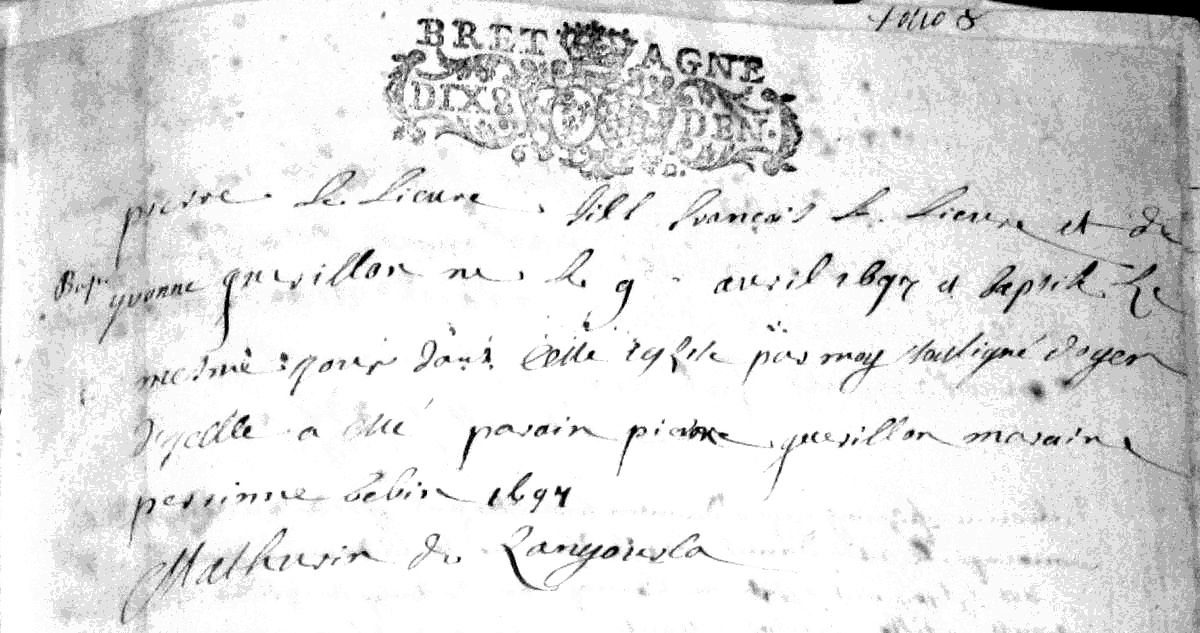 folio 8
BRETAGNE
DIX8 DEN.
pierre le lieure fils francois le lieure et de
Bap. yvonne querillon ne le 9 avril 1697 et baptise le
mesme jour dans cette eglise par moy soubsigné doyen
d'ycelle a esté parain pierre querillon maraine
perrinne bebin 1697
Mathurin de Langourla